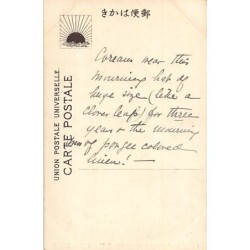 きかは便郵
UNION POSTALE UNIVERSELLE.
CARTE POSTALE
Coreans wear this
mourning hat of
huge size (like a
clover leaf) for three
years & the mourning
of pongee colored
linen! —